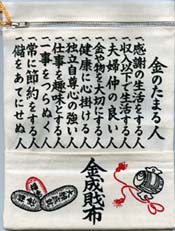 金のたまる人
一感謝の生活をする人
一収入以下で生活する人
一夫婦仲の良い人
一金や物を大切にする人
一健康に心掛ける人
一独立自尊心の強い人
一仕事を趣味とする人
一一事をつらぬく人
一常に節約をする人
一儲をあてにせぬ人
金成財布